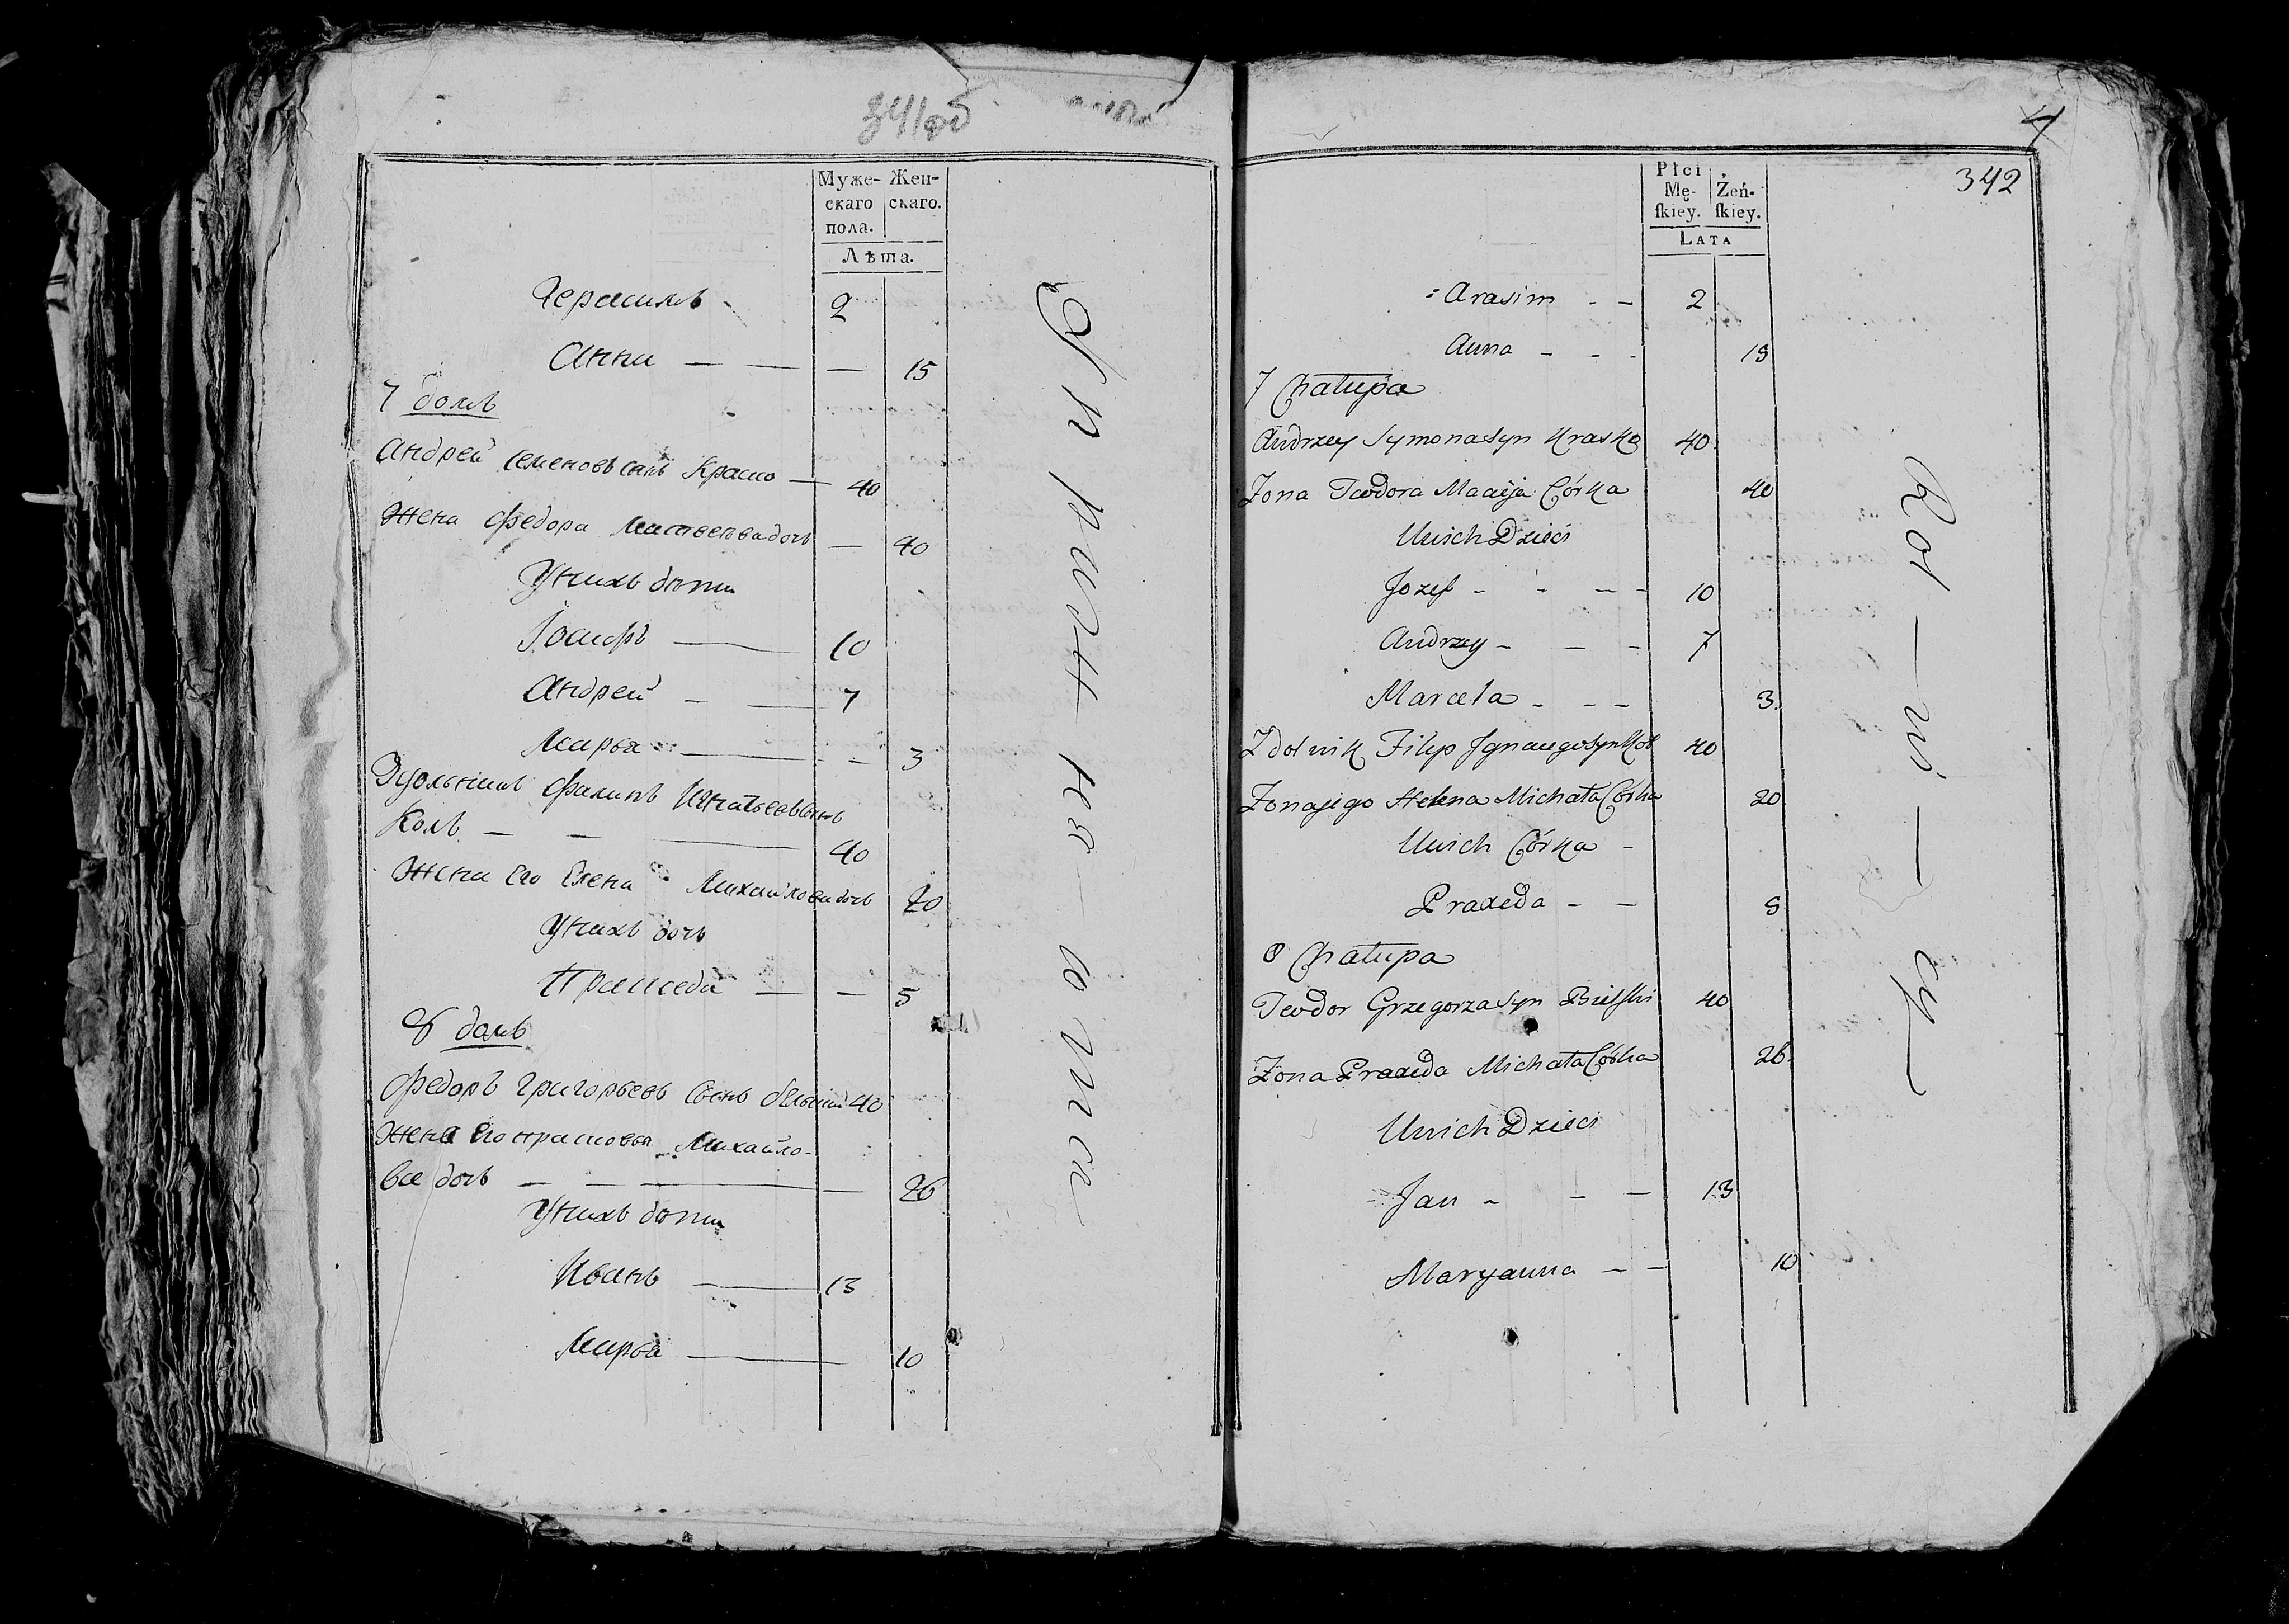 341об
Муже- Жен-
скаго скаго.
пола.
Лѣта.
Герасимъ 2
Анна — — — 15
7 домъ
Андрей Семеновъ сынъ Краско — 40
Жена Федора Матвеева дочь — 40
У нихъ дѣти
Іосифъ — 10
Андрей — — 7
Марья — — 3
Здольникъ Филипъ Игнатьевъ сынъ
Коль — — — 40
Жена Его Елена Михайлова дочь 20
У нихъ дочь
Праксeда — — 5
8 домъ
Федоръ Григорьевъ сынъ 40
Жена Его Михайло-
ва дочь — — — — 26
У нихъ дѣти
Иванъ — 13
Марья — 10
4
342
Płci
Mę- Żeń-
ſkiey. ſkiey.
Lata
Arasim - - 2
Anna - - - 15
7 Chałupa
Andrzey Symona Syn Krasko 40
Żona Teodora Macieja Córka 40
U nich Dzieci
Jozef - - - - 10
Andrzey - - - 7
Marcela - - - 3
Zdolnik Filip Ignacego Syn Kol 40
Żona jego Helena Michała Córka 20
U nich Córka -
Praxeda - - 5
8 Chałupa
Teodor Grzegorza Syn 40
Żona Praxeda Michała Córka 26
U nich Dzieci
Jan - - - 13
Maryanna - - 10